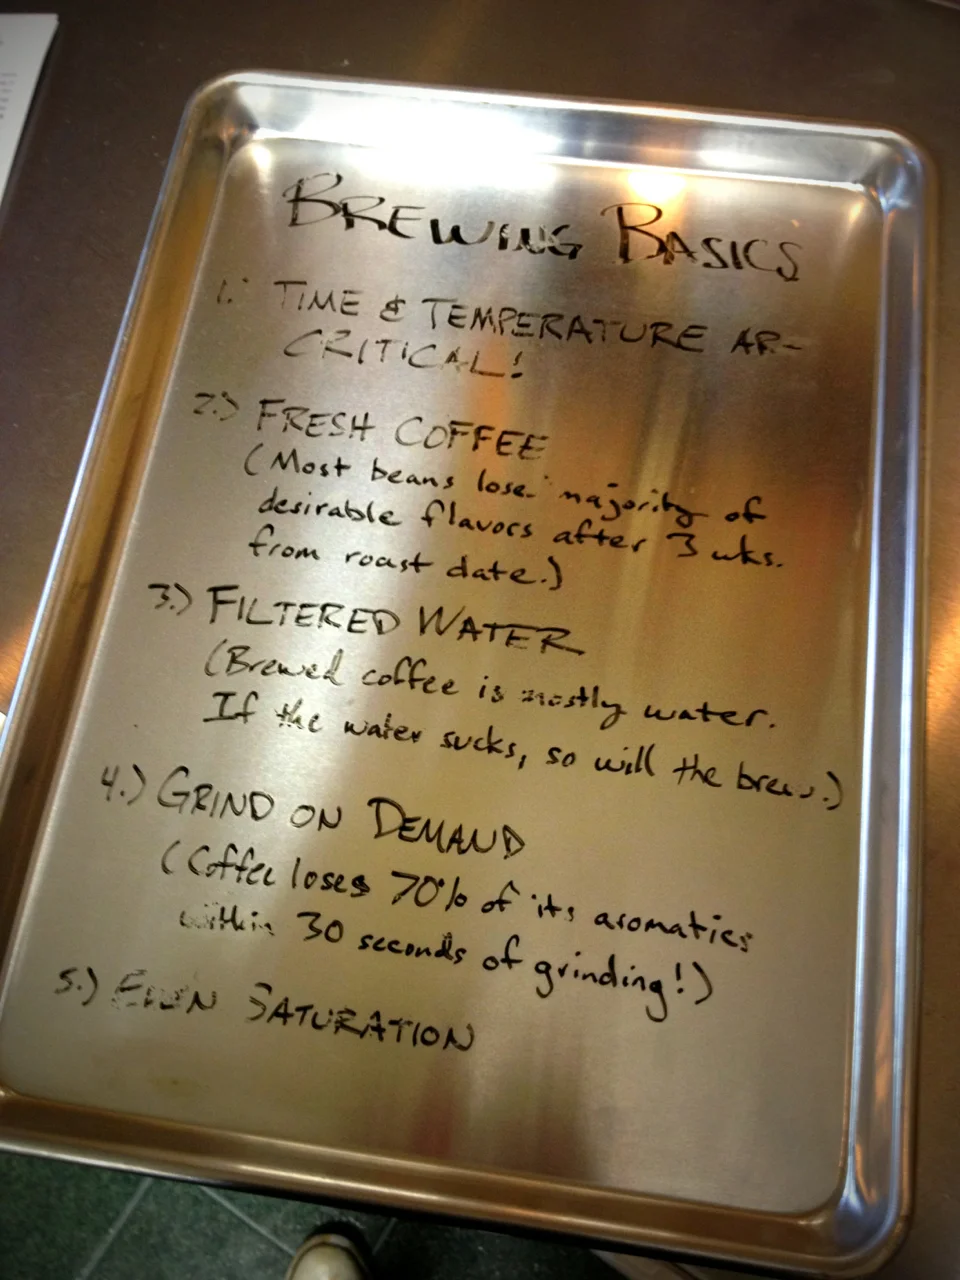 BREWING BASICS
1.) TIME & TEMPERATURE AR-
CRITICAL!
2.) FRESH COFFEE
(Most beans lose majority of
desirable flavors after 3 wks.
from roast date.)
3.) FILTERED WATER
(Brewed coffee is mostly water.
If the water sucks, so will the brew.)
4.) GRIND ON DEMAND
(Coffee loses 70% of its aromatics
within 30 seconds of grinding!)
5.) EVEN SATURATION